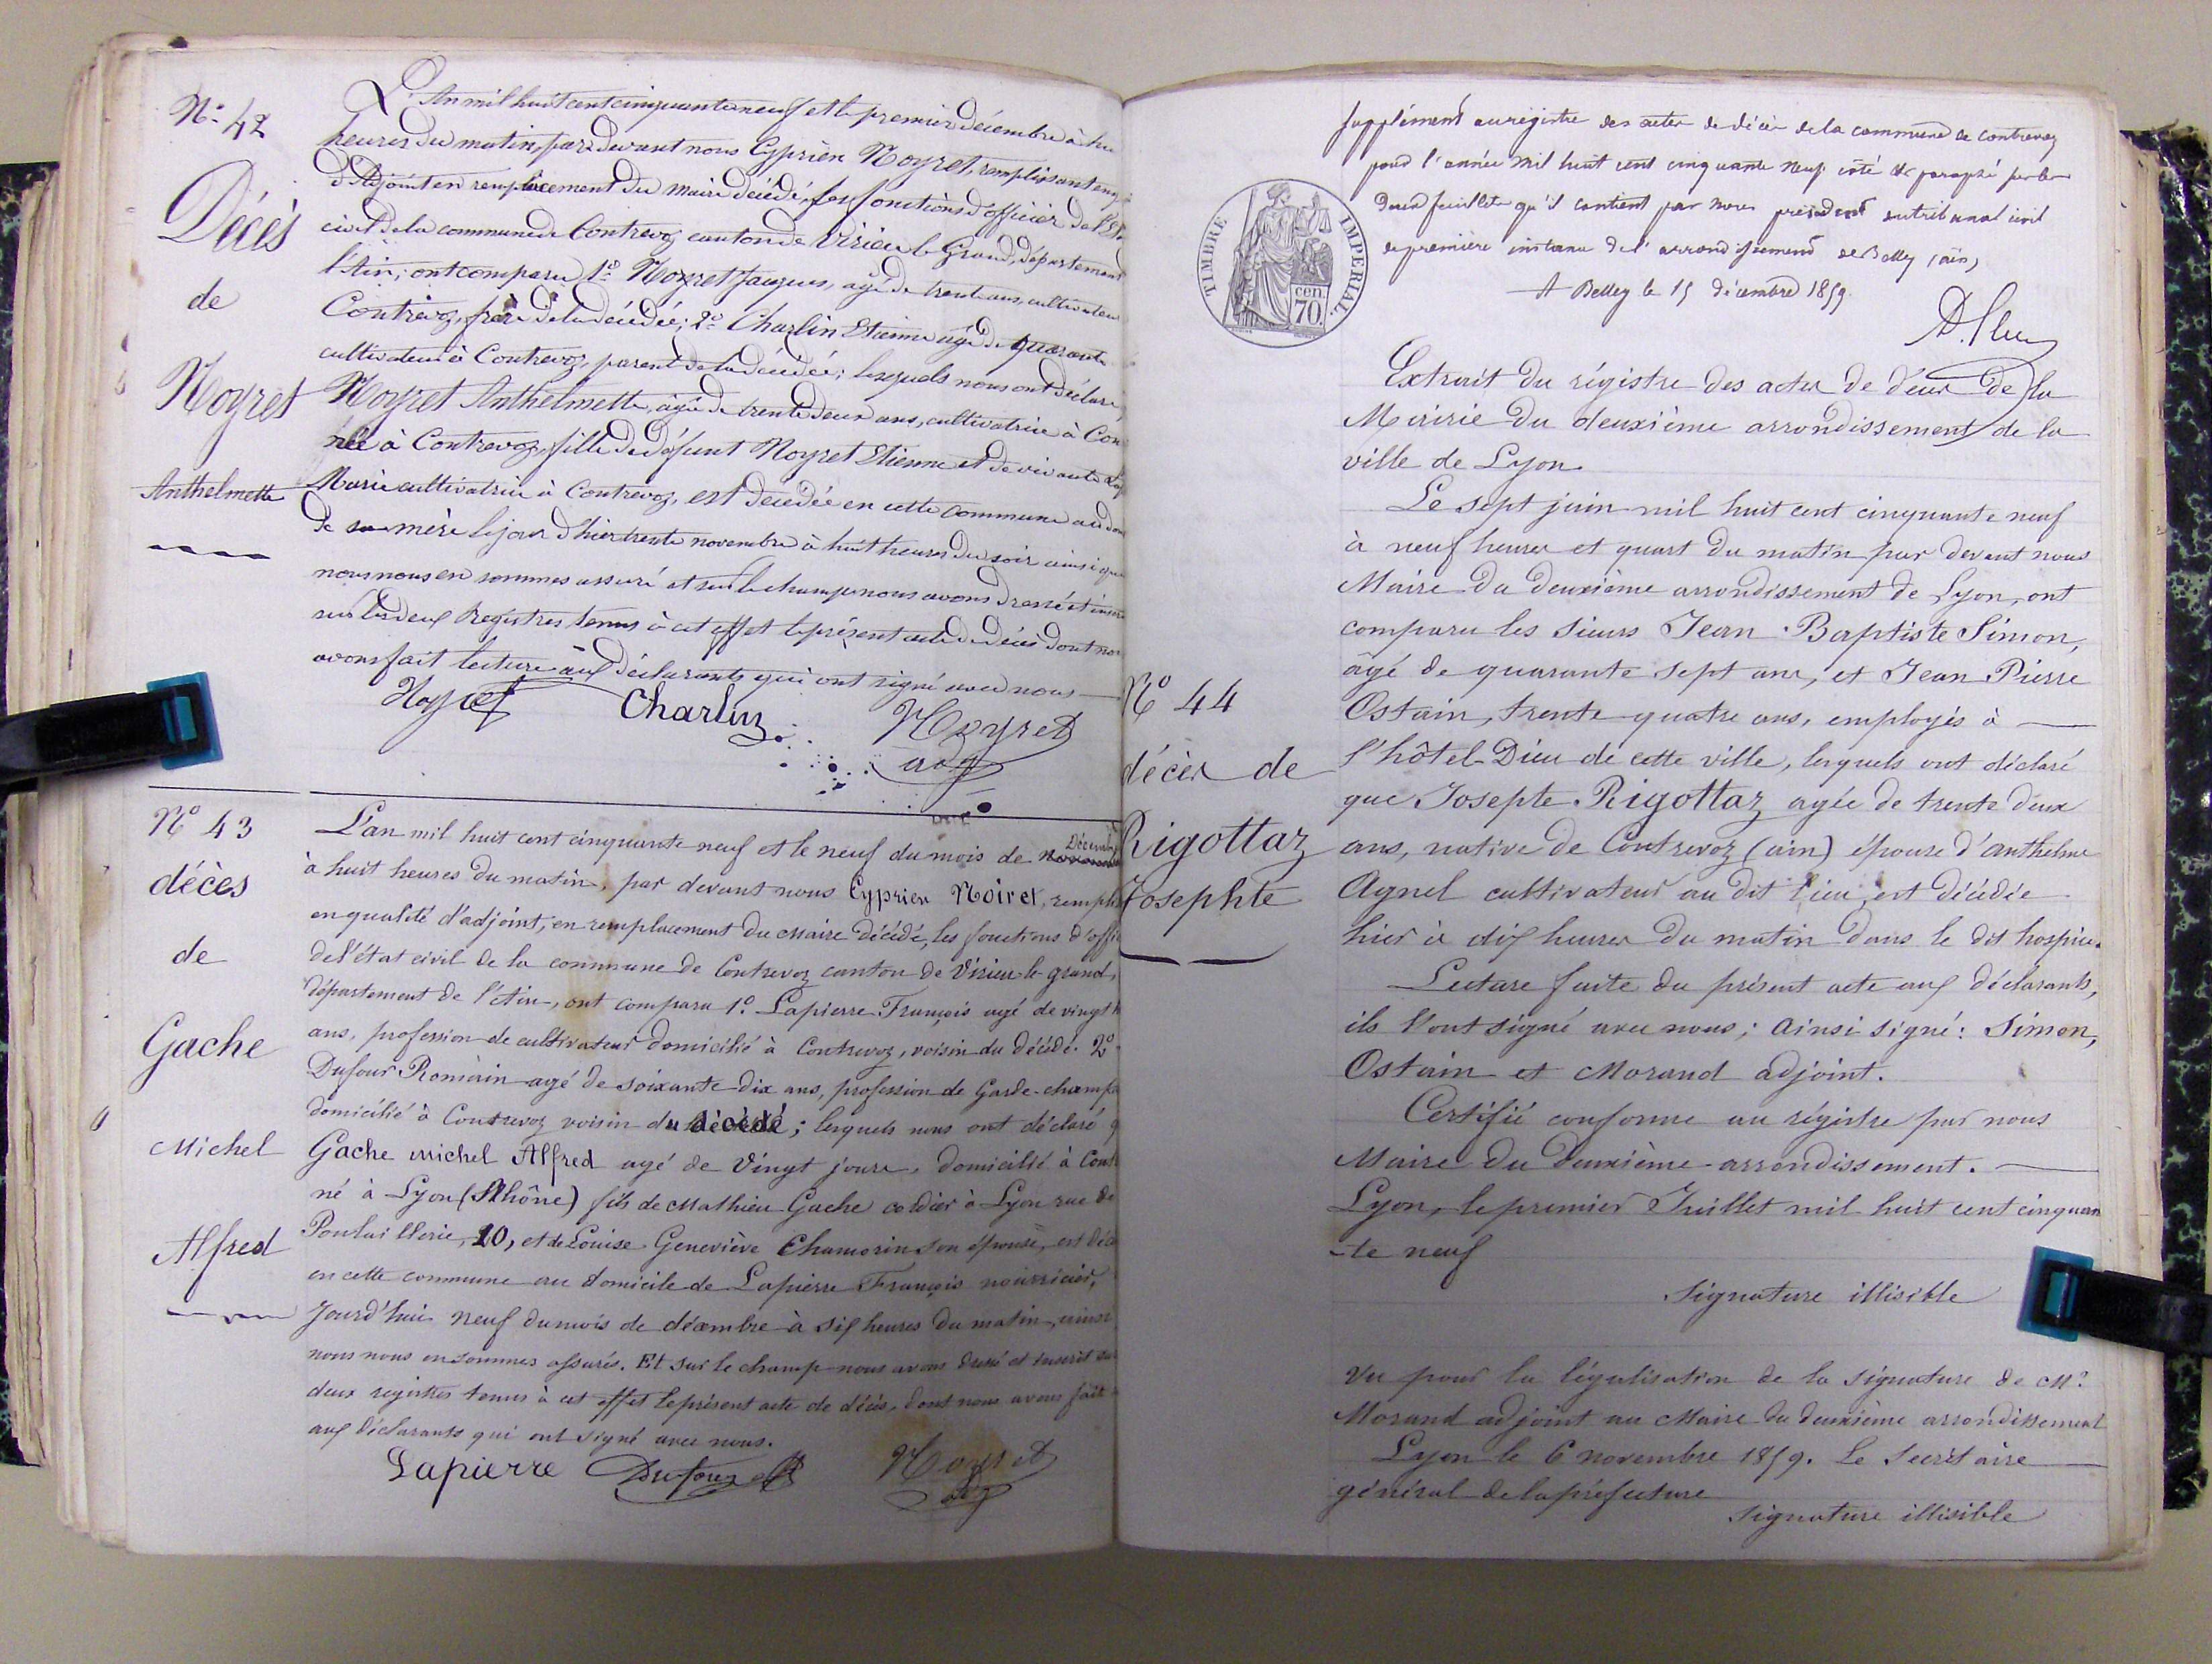 N° 42
Décès
de
Noyret
Anthelmette
L'An mil huit cent cinquante neuf et le premier décembre à hu
heures du matin, par devant nous Cyprien Noyret, remplissant en q
d'Adjoint en remplacement du maire décédé, les fonctions d'officier de l'Et
civil de la commune de Contrevoz canton de Virieu le Grand, département
l'Ain; ont comparu 1° Noyret Jacques, agé de trente ans, cultivateur
Contrevoz, frère de la décédée; 2° Charlin Etienne agé de quarante
cultivateur à Contrevoz, parent de la décédée; lesquels nous ont déclaré
Noyret Anthelmette, agée de trente deux ans, cultivatrice à Con
née à Contrevoz, fille de défunt Noyret Etienne et de vivante
Marie cultivatrice à Contrevoz, est décédée en cette commune au dom
de sa mère le jour d'hier trente novembre à huit heures du soir ainsi que
nous nous en sommes assuré et sur le champ nous avons dressé et inscr
sur les deux Registres tenus à cet effet le présent acte de décès dont nou
avons fait lecture aux déclarants qui ont signé avec nous
Noyret Charlin Noyret
adj
N° 43
décès
de
Gache
Michel
Alfred
L'an mil huit cent cinquante neuf et le neuf du mois de novembre Décembre
à huit heures du matin, par devant nous Cyprien Noiret, rempliss
en qualité d'adjoint, en remplacement du Maire décédé, les fonctions d'offi
de l'état civil de la commune de Contrevoz canton de Virieu-le-grand,
département de l'Ain, ont comparu 1° Lapierre François agé de vingt h
ans, profession de cultivateur domicilié à Contrevoz, voisin du décédé. 2°
Dufour Romain agé de soixante-dix ans, profession de Garde-champê
domicilié à Contrevoz voisin du décédé; lesquels nous ont déclaré q
Gache Michel Alfred agé de Vingt jours, domicilié à Cont
né à Lyon (Rhône) fils de Mathieu Gache cordier à Lyon rue de
Poulaillerie, 20, et de Louise Geneviève Chamorin son épouse, est déc
en cette commune au domicile de Lapierre François nourricier,
Jourd'hui neuf du mois de décembre à six heures du matin, ainsi
nous nous en sommes assurés. Et sur le champ nous avons dressé et inscrit sur
deux registres tenus à cet effet le présent acte de décès, dont nous avons fait
aux déclarants qui ont signé avec nous.
Lapierre Dufour Noyret
adj
Supplément au régistre des actes de décès de la commune de Contrevoz
pour l'année mil huit cent cinquante neuf coté et paraphé par les
deux feuillets qu'il contient par nous président au tribunal civil
de première instance de l'arrondissement de Belley (ain)
A Belley le 15 décembre 1859.
TIMBRE IMPERIAL.
70. cen.
N° 44
décès de
Rigottaz
Josephte
Extrait du régistre des actes de décès de la
Mairie du deuxième arrondissement de la
ville de Lyon
Le sept juin mil huit cent cinquante neuf
à neuf heures et quart du matin par devant nous
Maire du deuxième arrondissement de Lyon, ont
comparu les sieurs Jean-Baptiste Simon,
âgé de quarante sept ans, et Jean Pierre
Ostain, trente quatre ans, employés à
l'hôtel-Dieu de cette ville, lesquels ont déclaré
que Josepte Rigottaz agée de trente deux
ans, native de Contrevoz (ain) épouse d'anthelme
Aynel cultivateur au dit lieu, est décédée
hier à dix heures du matin dans le dit hospice.
Lecture faite du présent acte aux déclarants,
ils l'ont signé avec nous; ainsi signé: Simon,
Ostain et Morand adjoint.
Certifié conforme au régistre par nous
Maire du deuxième arrondissement.
Lyon, le premier Juillet mil huit cent cinquan
-te neuf
Signature illisible
Vu pour la légalisation de la signature de Mr
Morand adjoint au Maire du deuxième arrondissement
Lyon le 6 novembre 1859. Le Secrétaire
général de la préfecture
signature illisible